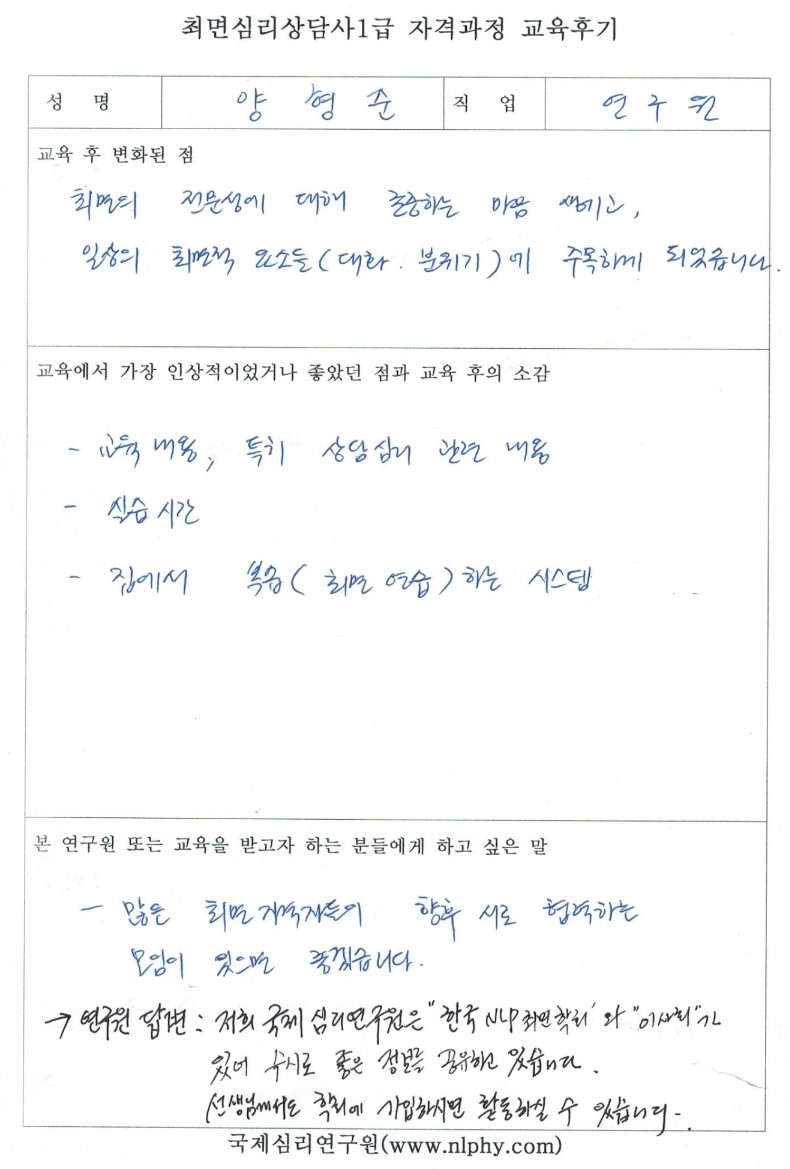 최면심리상담사1급 자격과정 교육후기
성 명 양 형 준 직 업 연 구 원
교육 후 변화된 점
최면의 전문성에 대해 존중하는 마음 생기고,
일상의 최면적 요소들(대화. 분위기)에 주목하게 되었습니다.
교육에서 가장 인상적이었거나 좋았던 점과 교육 후의 소감
- 교육 내용, 특히 상담심리 관련 내용
- 실습 시간
- 집에서 복습(최면 연습)하는 시스템
본 연구원 또는 교육을 받고자 하는 분들에게 하고 싶은 말
- 많은 최면 자격자들이 향후 서로 협력하는
모임이 있으면 좋겠습니다.
→ 연구원 답변 : 저희 국제 심리연구원은 "한국 NLP 최면학회' 와 "이사회"가
있어 수시로 좋은 정보를 공유하고 있습니다.
선생님께서도 학회에 가입하시면 활동하실 수 있습니다-.
국제심리연구원(www.nlphy.com)